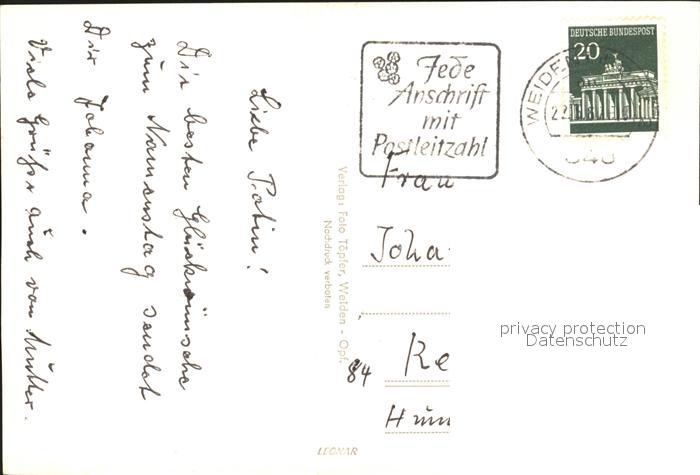 Liebe Patin!
Die besten Glückwünsche
zum Namenstag sendet
Dir Johanna.
Viele Grüße auch von Mutter.
Verlag: Foto Töpfer, Weiden - Opf.
Nachdruck verboten
LEONAR
Jede
Anschrift
mit
Postleitzahl
DEUTSCHE BUNDESPOST
20
WEIDEN
Frau
Joha
84 Re
privacy protection
Datenschutz